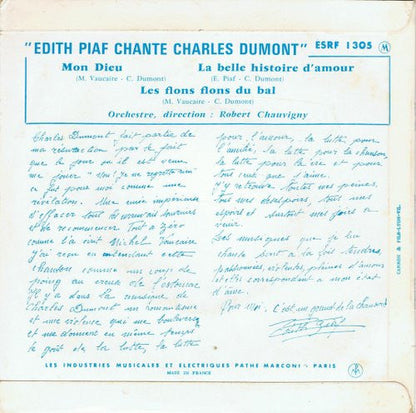 "EDITH PIAF CHANTE CHARLES DUMONT" ESRF 1305 M
Mon Dieu
(M. Vaucaire - C. Dumont)
La belle histoire d'amour
(E. Piaf - C. Dumont)
Les flons flons du bal
(M. Vaucaire - C. Dumont)
Orchestre, direction : Robert Chauvigny
Charles Dumont fait partie de
ma résurrection par le fait
que le jour où il est venu
me jouer "Non je ne regrette rien"
ce fut pour moi comme une
révélation. Une envie impérieuse
d'effacer tout
et de recommencer tout à zéro
comme l'a écrit Michel Vaucaire
j'ai reçu en entendant cette
chanson comme un coup de
poing au creux de l'estomac
Il y a dans la musique de
Charles Dumont un romantisme
et une violence qui me bouleverse
et me donnent en même temps
le goût de la lutte, la lutte
pour l'amour, la lutte pour
l'amitié, la lutte pour la chanson,
la lutte pour la vie et pour
tous ceux que j'aime.
J'y retrouve toutes mes peines,
tous mes désespoirs, tous mes
espoirs et surtout mes joies à
venir.
Les musiques que j'ai lu
chanté sont à la fois tendres,
passionnées, violentes, pleines d'amour
et correspondant à mon état
d'âme.
Pour moi, c'est un grand de la chanson
Edith Piaf
LES INDUSTRIES MUSICALES ET ELECTRIQUES PATHE MARCONI - PARIS
MADE IN FRANCE